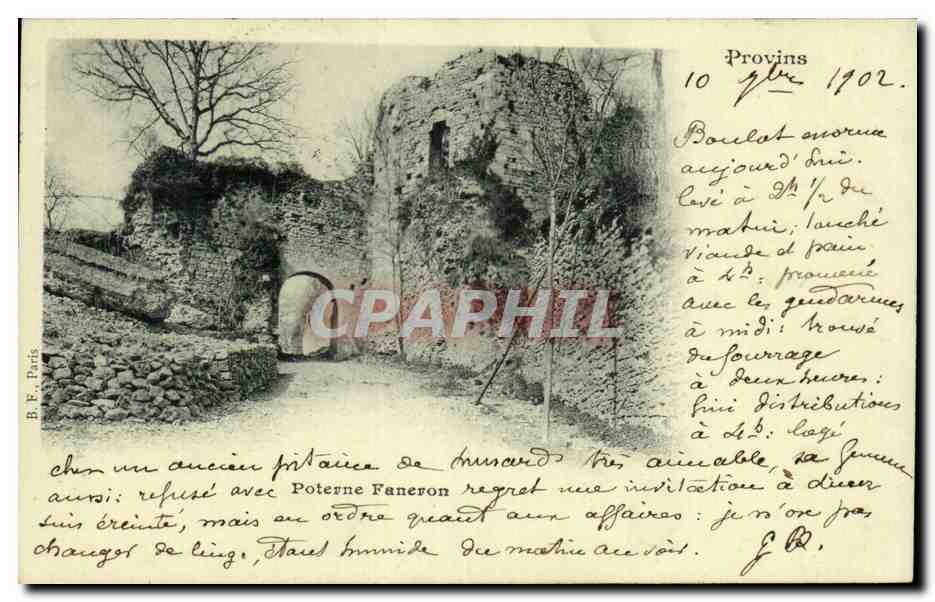 Provins
10 7bre 1902.
Boulot énorme
aujourd'hui.
levé à 2h 1/2 du
matin; touché
viande et pain
à 4h: promené
avec les gendarmes
à midi: trouvé
du fourrage
à deux heures:
fini distributions
à 4h: logé
chez un ancien fitaine de hussards très aimable, sa femme
aussi: refusé avec regret une invitation à dîner
suis éreinté, mais en ordre quant aux affaires: je n'ose pas
changer de linge, étant humide du matin au soir.
Poterne Faneron
B. F., Paris
CPAPHIL